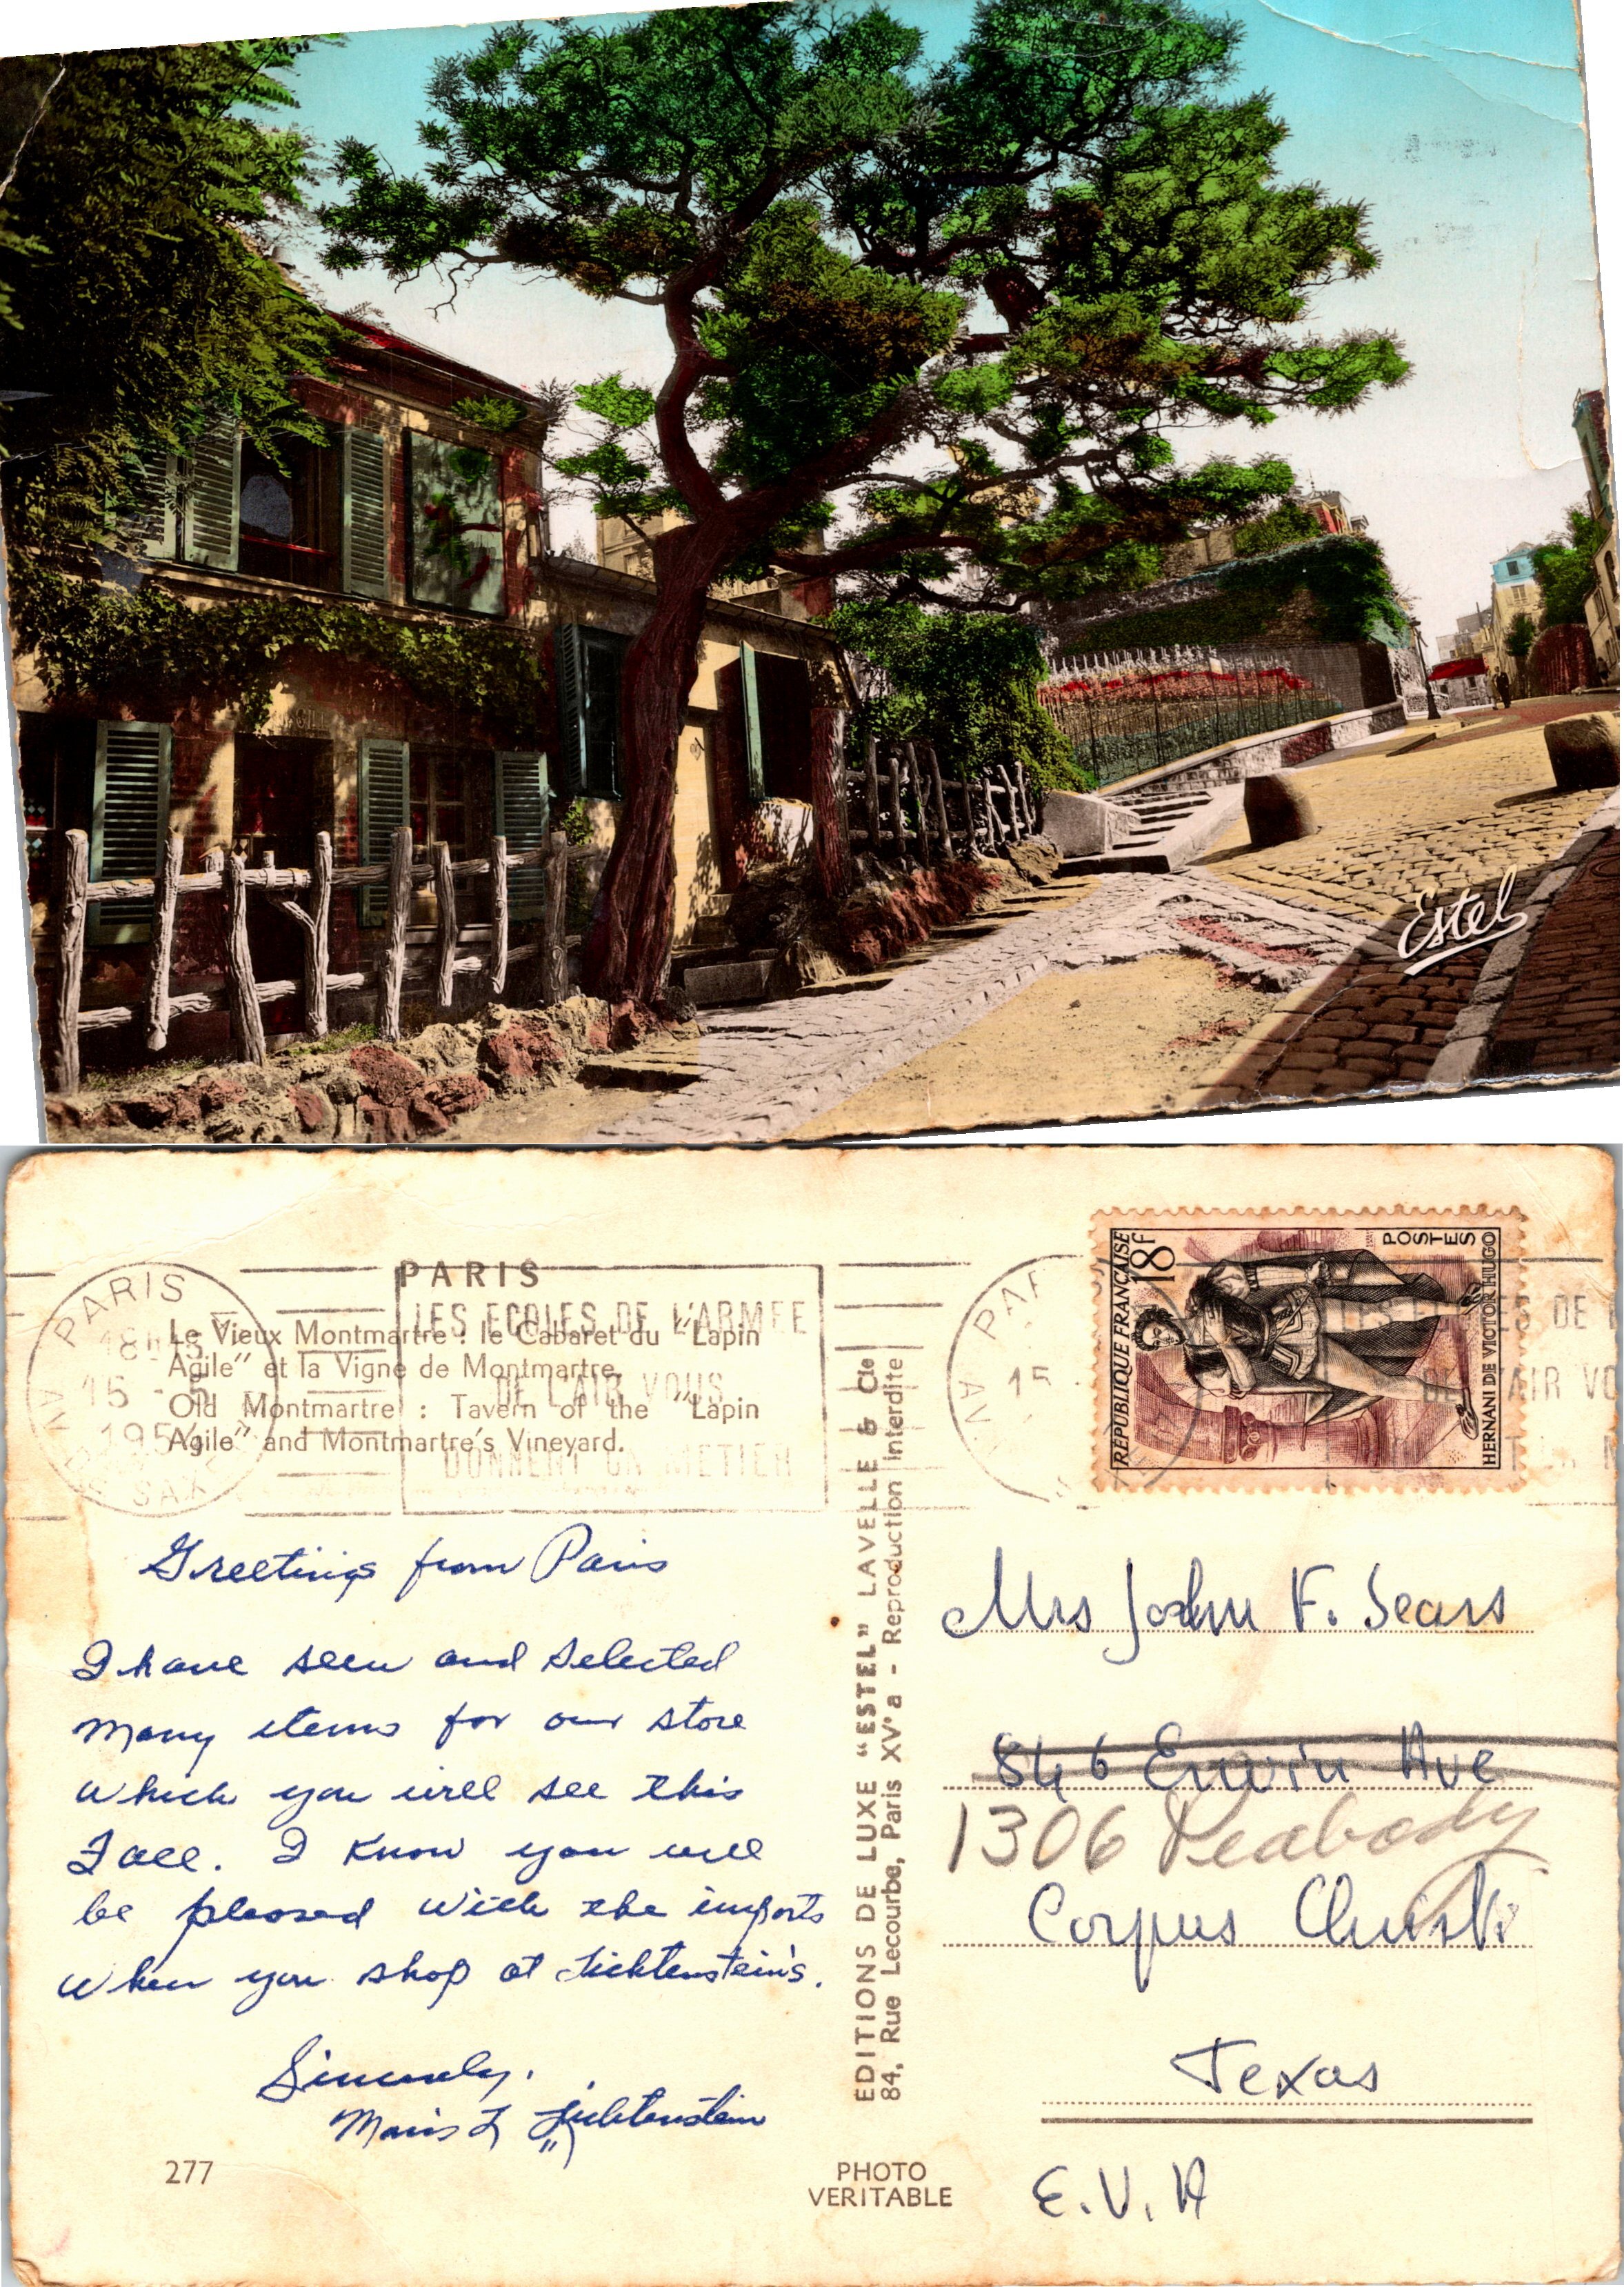 Estel
PARIS
Le Vieux Montmartre : le Cabaret du "Lapin
Agile" et la Vigne de Montmartre.
Old Montmartre : Tavern of the "Lapin
Agile" and Montmartre's Vineyard.
PARIS
18H
15 - 5
195
LES ECOLES DE L'ARMEE
DE L'AIR VOUS
DONNENT UN METIER
Greetings from Paris
I have seen and selected
many items for our store
which you will see this
Fall. I know you will
be pleased with the imports
when you shop at Lichtenstein's.
Sincerely,
Morris L Lichtenstein
277
EDITIONS DE LUXE "ESTEL" LAVELLE & Cie
84, Rue Lecourbe, Paris XV'a - Reproduction interdite
PHOTO
VERITABLE
PAR
15
REPUBLIQUE FRANÇAISE
18F
POSTES
HERNANI DE VICTOR HUGO
Mrs John F. Sears
846 Erwin Ave
1306 Peabody
Corpus Christi
Texas
E.V.A